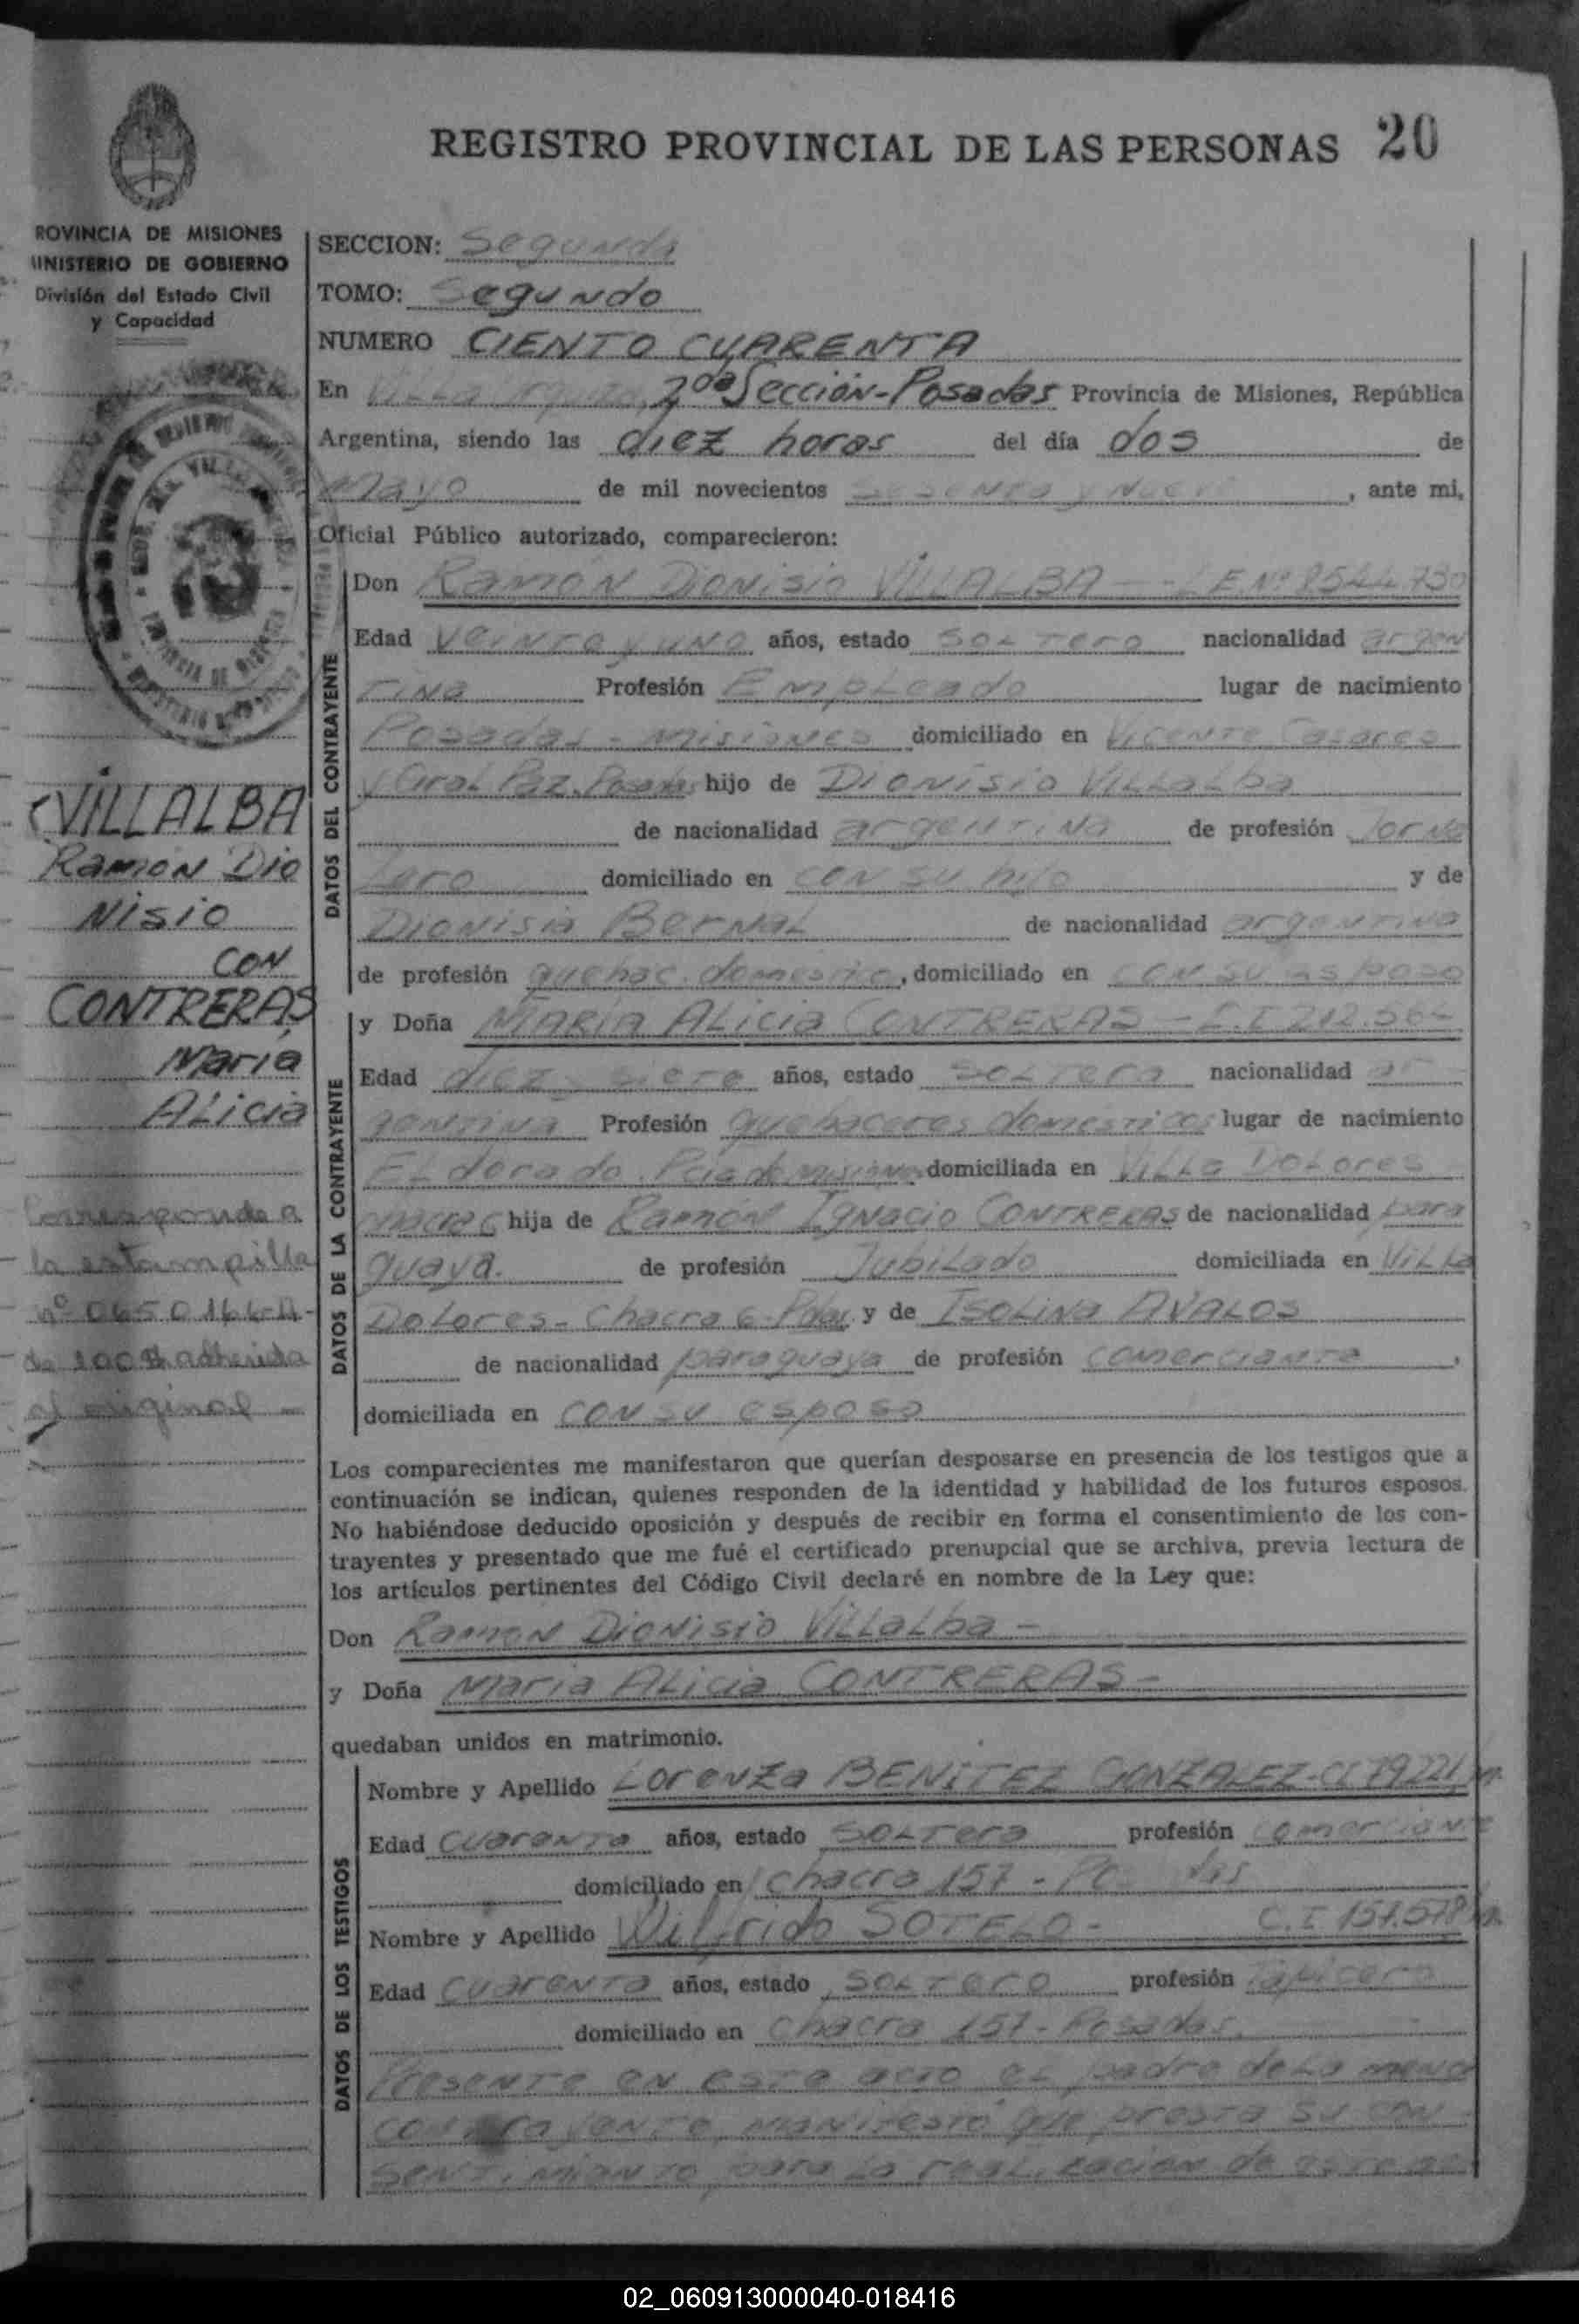 REGISTRO PROVINCIAL DE LAS PERSONAS 20
ROVINCIA DE MISIONES
MINISTERIO DE GOBIERNO
División del Estado Civil
y Capacidad
SECCION: Segunda
TOMO: Segundo
NUMERO CIENTO CUARENTA
En Villa Urquiza, 2da Sección-Posadas Provincia de Misiones, República
Argentina, siendo las diez horas del día dos de
Mayo de mil novecientos sesenta y nueve, ante mi,
Oficial Público autorizado, comparecieron:
DATOS DEL CONTRAYENTE
Don Ramón Dionisio VILLALBA - L.E.Nº 8544.730
Edad veinte y uno años, estado soltero nacionalidad argen
tina Profesión Empleado lugar de nacimiento
Posadas - Misiones domiciliado en Vicente Casares
y Gral Paz. Posadas hijo de Dionisio Villalba
de nacionalidad argentina de profesión Jorna
lero domiciliado en con su hijo y de
Dionisia Bernal de nacionalidad argentina
de profesión quehac. domestic, domiciliado en con su esposo
VILLALBA
Ramón Dio
nisio
con
CONTRERAS
Maria
Alicia
Corresponde a
la estampilla
nº 0650166-A-
de 100 $ adherida
al original -
DATOS DE LA CONTRAYENTE
y Doña MARIA ALicia CONTRERAS - C.I 212.564
Edad diez y siete años, estado soltera nacionalidad ar
gentina Profesión quehaceres domésticos lugar de nacimiento
ELdorado. Pcia de Misiones domiciliada en Villa Dolores
chacra 6 hija de Ramón Ignacio CONTRERAS de nacionalidad para
guaya. de profesión Jubilado domiciliada en Villa
Dolores - Chacra 6 - Pdas y de ISOLINA AVALOS
de nacionalidad paraguaya de profesión comerciante,
domiciliada en con su esposo
Los comparecientes me manifestaron que querían desposarse en presencia de los testigos que a
continuación se indican, quienes responden de la identidad y habilidad de los futuros esposos.
No habiéndose deducido oposición y después de recibir en forma el consentimiento de los con-
trayentes y presentado que me fué el certificado prenupcial que se archiva, previa lectura de
los artículos pertinentes del Código Civil declaré en nombre de la Ley que:
Don Ramon Dionisio Villalba -
y Doña Maria Alicia CONTRERAS -
quedaban unidos en matrimonio.
DATOS DE LOS TESTIGOS
Nombre y Apellido Lorenza BENITEZ GONZALEZ - CI 79221
Edad Cuarenta años, estado soltera profesión comerciante
domiciliado en chacra 157 - Posadas
Nombre y Apellido Wilfrido SOTELO - C.I 157.578
Edad cuarenta años, estado soltero profesión tapicero
domiciliado en chacra 157 - Posadas.
Presente en este acto el padre de la menor
contrayente, manifestó que presta su con
sentimiento para la realización de este ac
02_060913000040-018416